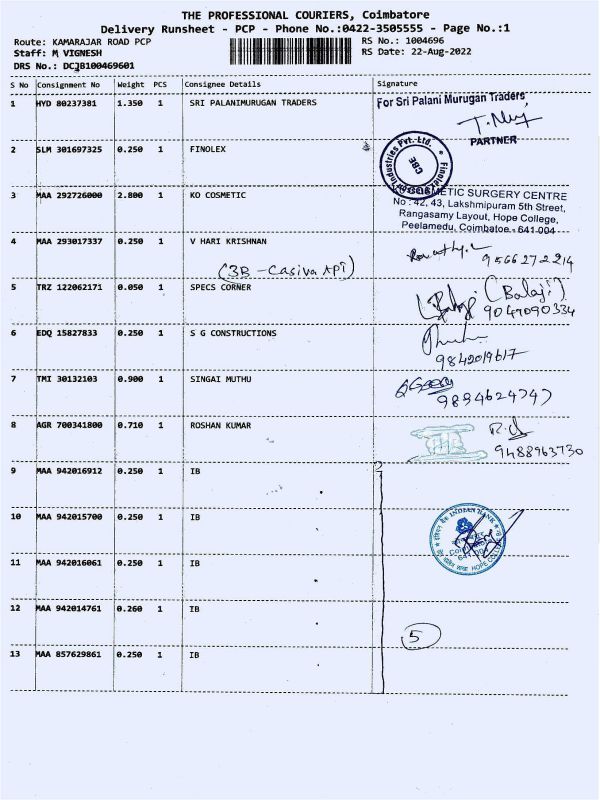 THE PROFESSIONAL COURIERS, Coimbatore
Delivery Runsheet - PCP - Phone No.:0422-3505555 - Page No.:1
Route: KAMARAJAR ROAD PCP
RS No.: 1004696
Staff: M VIGNESH
RS Date: 22-Aug-2022
DRS No.: DCJB100469601
S No Consignment No Weight PCS Consignee Details Signature
1 HYD 80237381 1.350 1 SRI PALANIMURUGAN TRADERS
For Sri Palani Murugan Traders
PARTNER
2 SLM 301697325 0.250 1 FINOLEX
Industries Pvt. Ltd.
CBE
3 MAA 292726000 2.800 1 KO COSMETIC
COSMETIC SURGERY CENTRE
No : 42, 43, Lakshmipuram 5th Street,
Rangasamy Layout, Hope College,
Peelamedu, Coimbatore - 641 004
4 MAA 293017337 0.250 1 V HARI KRISHNAN
9566272214
(3B - Casiva APT)
5 TRZ 122062171 0.050 1 SPECS CORNER
(Balaji)
9047090334
6 EDQ 15827833 0.250 1 S G CONSTRUCTIONS
9842019617
7 TMI 30132103 0.900 1 SINGAI MUTHU
9894624747
8 AGR 700341800 0.710 1 ROSHAN KUMAR
9488963730
9 MAA 942016912 0.250 1 IB
10 MAA 942015700 0.250 1 IB
INDIAN BANK
641 004
HOPE COLLEGE
11 MAA 942016061 0.250 1 IB
12 MAA 942014761 0.260 1 IB
5
13 MAA 857629861 0.250 1 IB